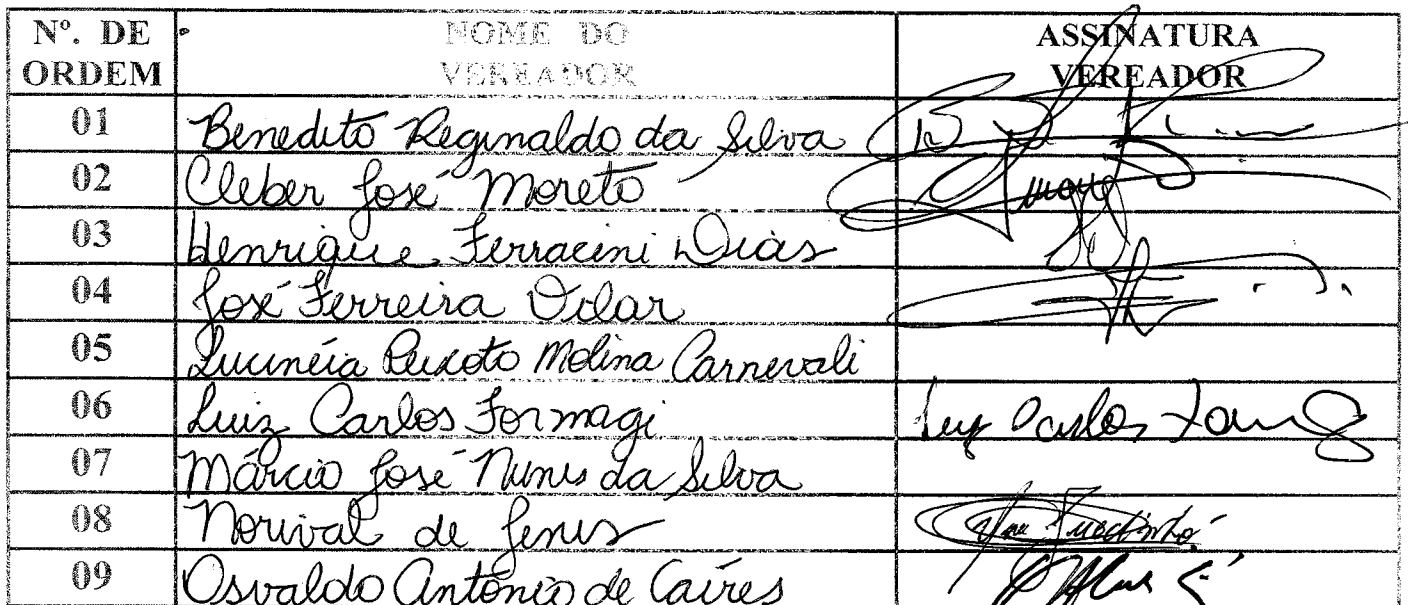 Nº. DE ORDEM NOME DO VEREADOR ASSINATURA VEREADOR
01 Benedito Reginaldo da Silva
02 Cleber José Moreto
03 Henrique Ferracini Dias
04 José Ferreira Vilar
05 Lucinéia Peixoto Molina Carnevali
06 Luiz Carlos Formagi Luiz Carlos
07 Márcio José Nunes da Silva
08 Norival de Jesus
09 Osvaldo Antônio de Caíres